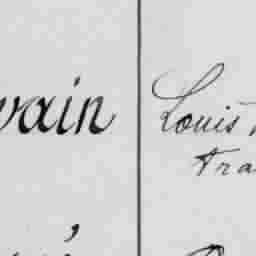 vain
Louis
tra